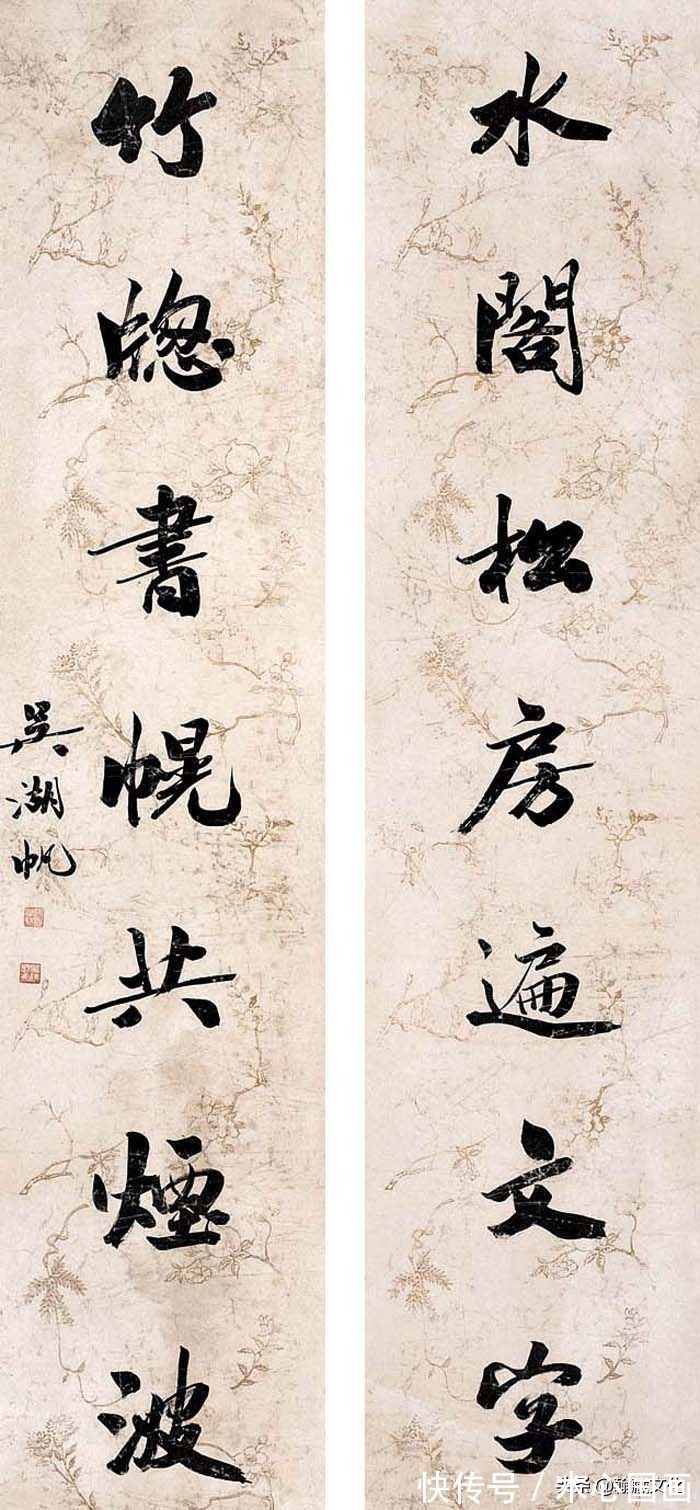 水閣松房遍文字
竹牎書幌共煙波
吳湖帆
快传号 /